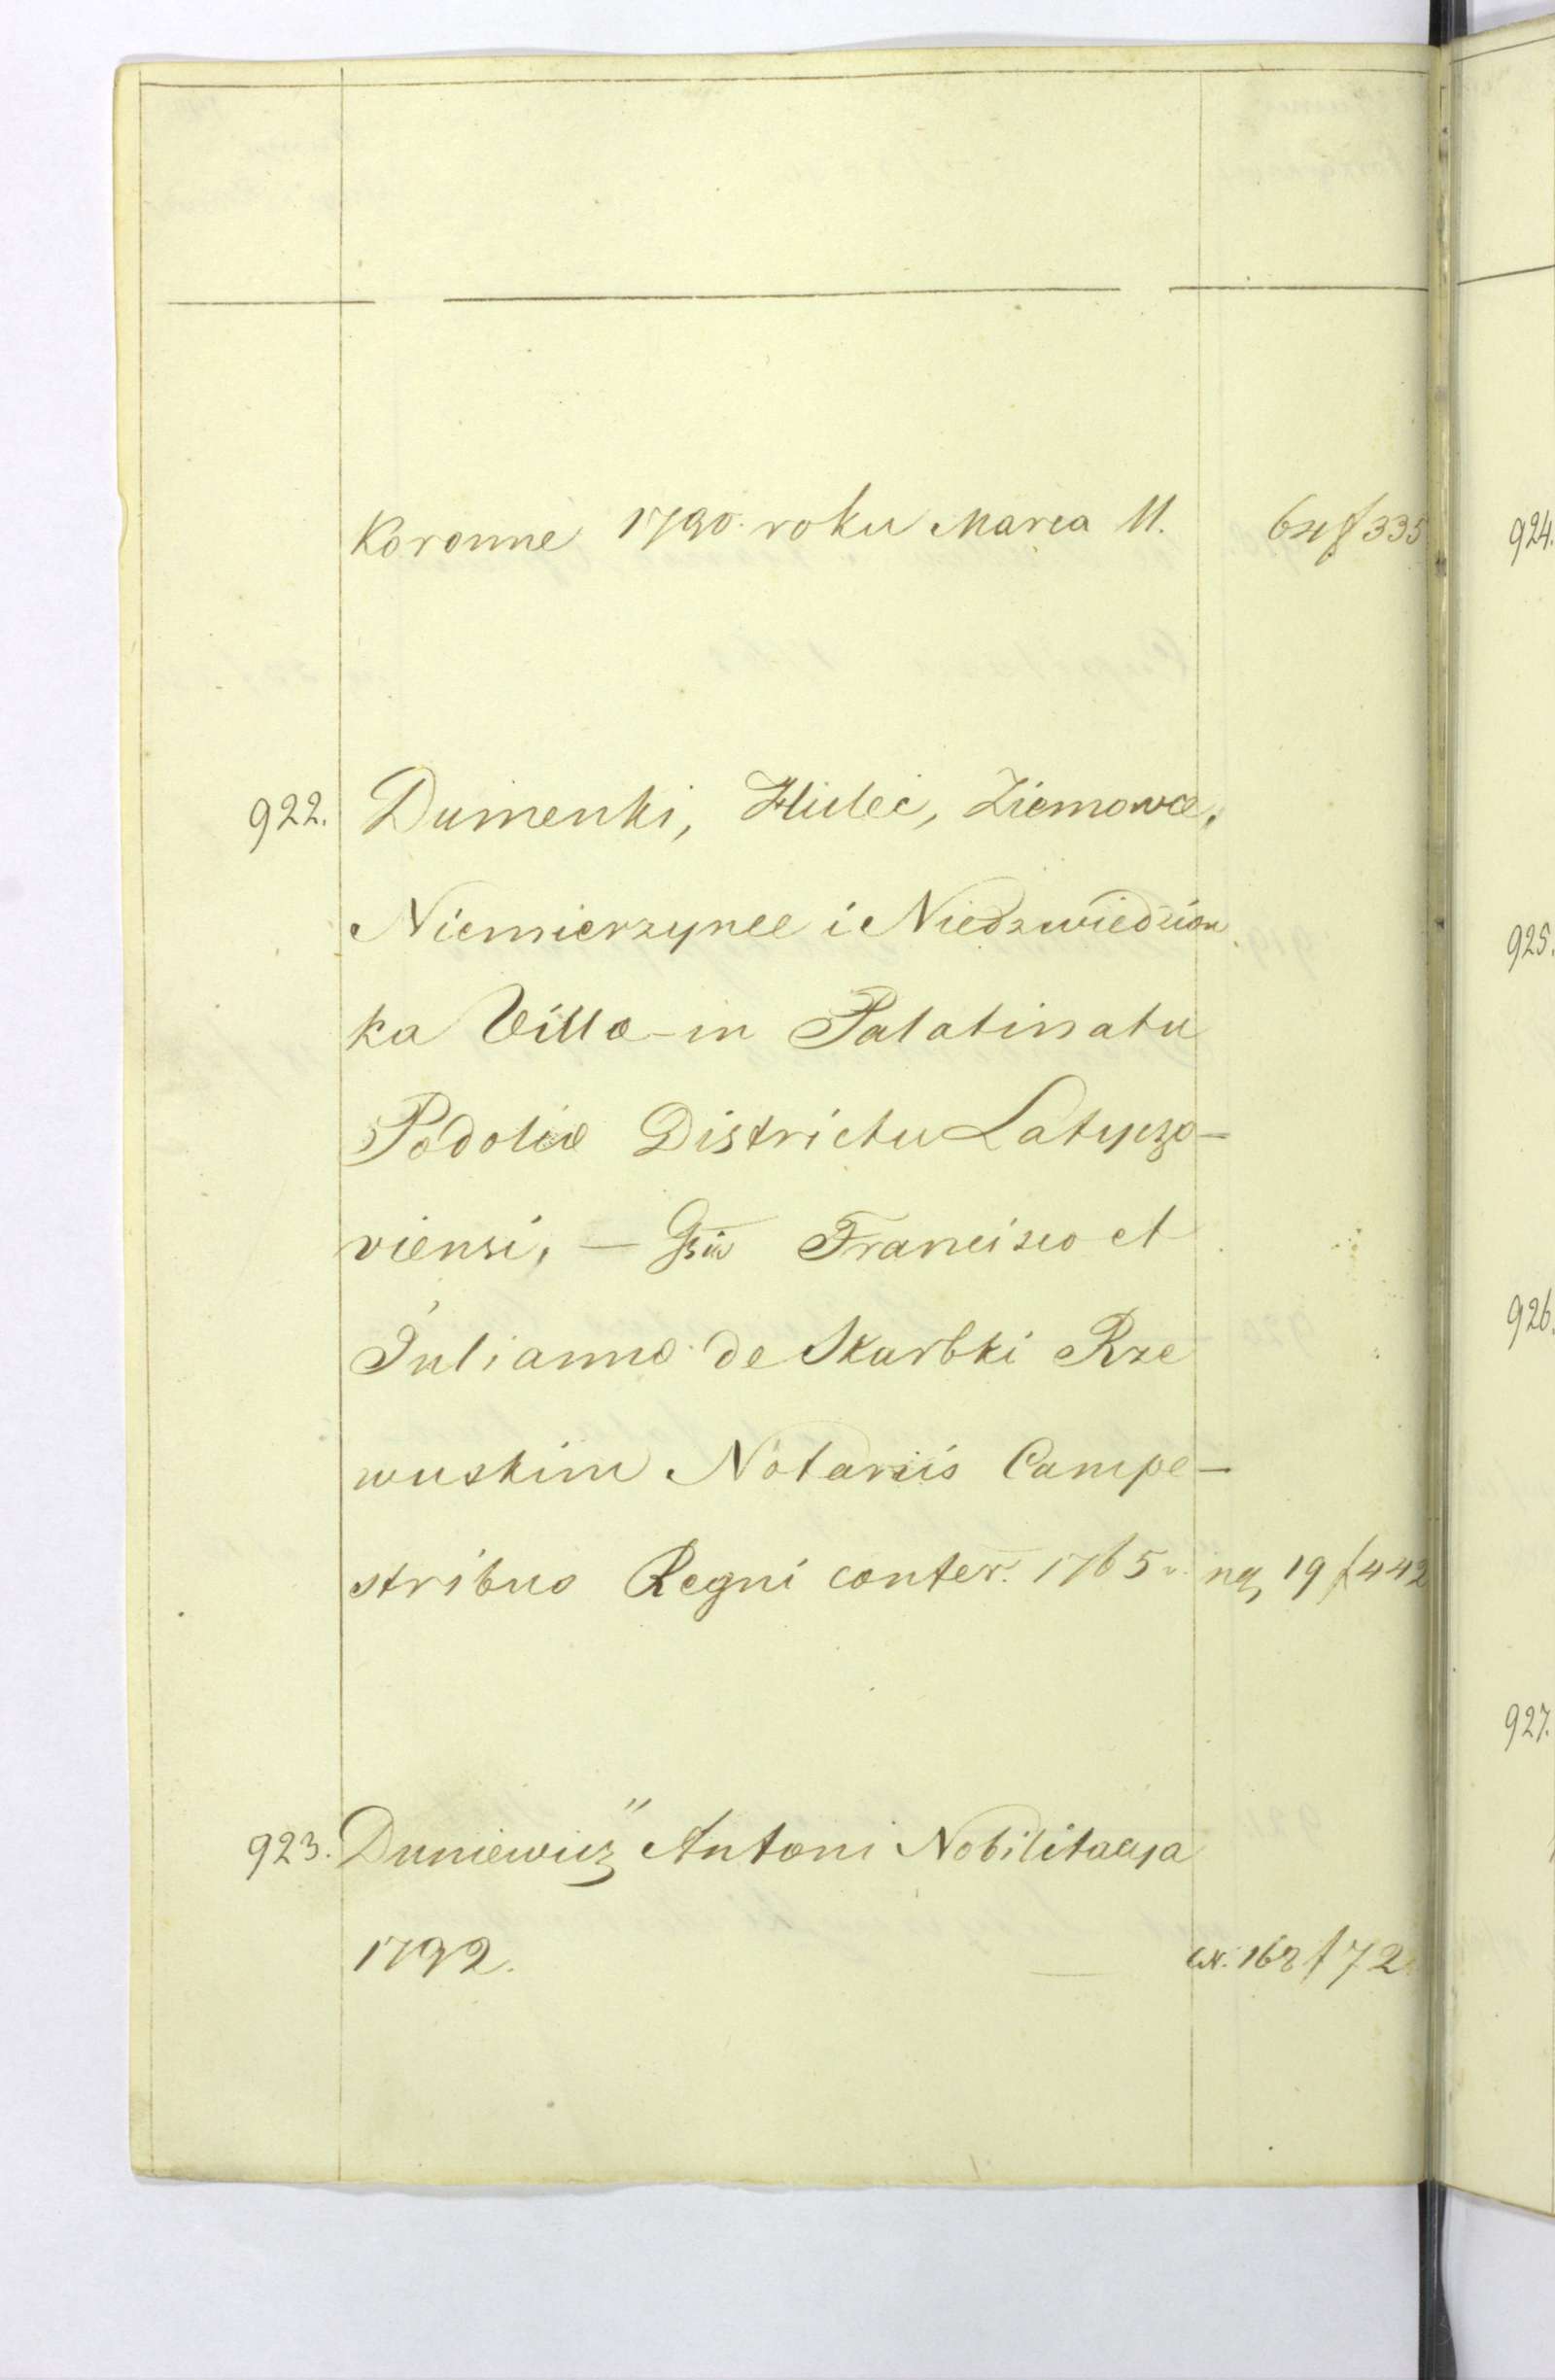 Koronne 1790. roku Marca 11. 6 f 335
922. Dumenki, Hulei, Ziemowce,
Niemierzynce i Niedzwiedzion
ka Villæ in Palatinatu
Podoliæ Districtu Latyczo-
viensi, — Francisco et
Juliannæ de Skarbki Rze
wuskim Notariis Campe-
stribus Regni confer. 1765 r. ng, 19 f 442
923. Duniewicz" Antoni Nobilitacya
1792. — 168 f 72
924.
925.
926.
927.